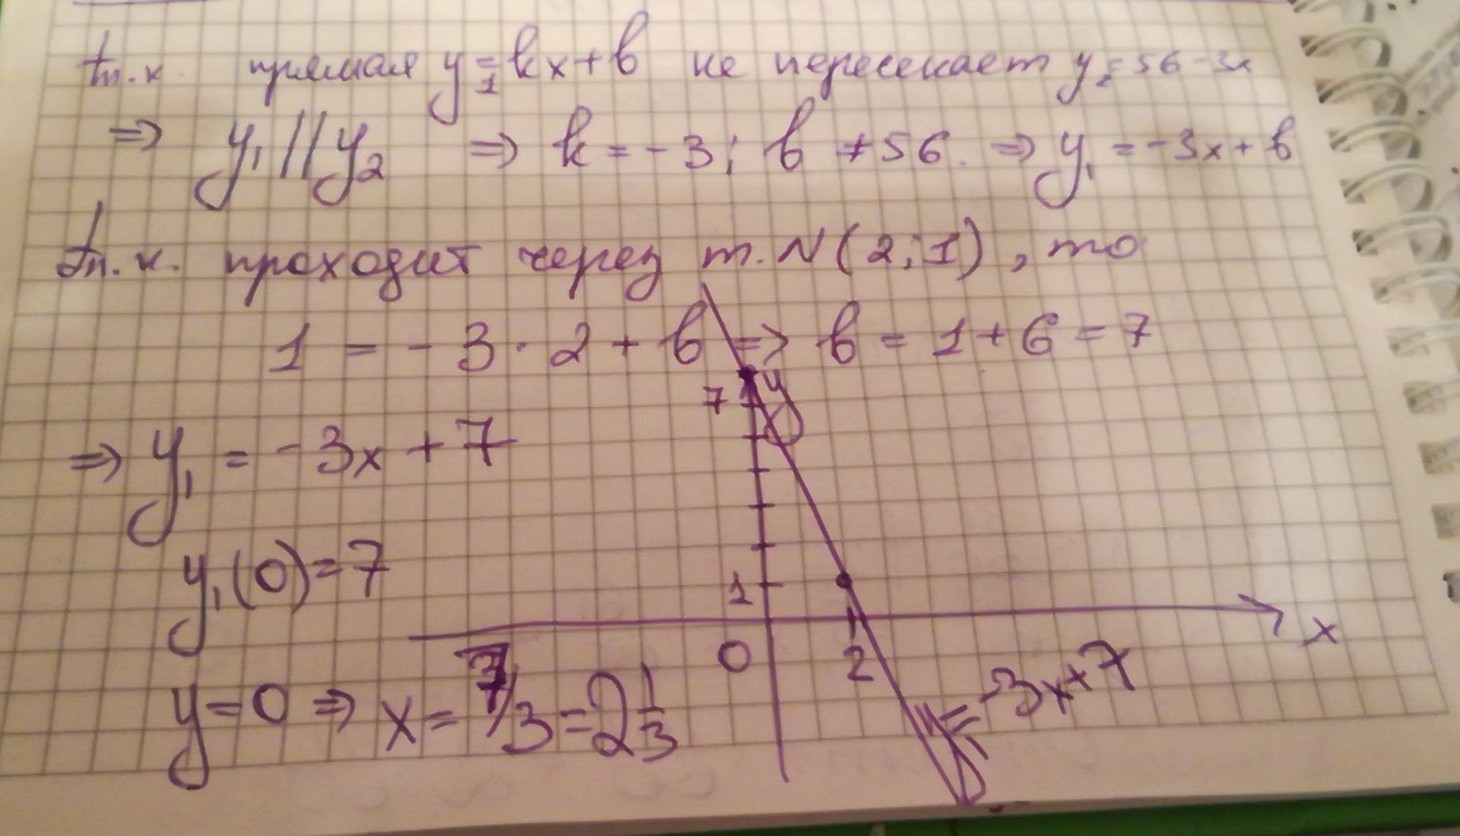 т.к. прямая y₁=kx+b не пересекает y₂=56-3x
⇒ y₁//y₂ ⇒ k=-3; b≠56. ⇒ y₁=-3x+b
т.к. проходит через т. N(2;1), то
1 = -3·2+b ⇒ b = 1+6 = 7
⇒ y₁ = -3x+7
y₁(0)=7
y=0 ⇒ x=7/3=2 1/3
y
7
1
0
2
x
y=-3x+7